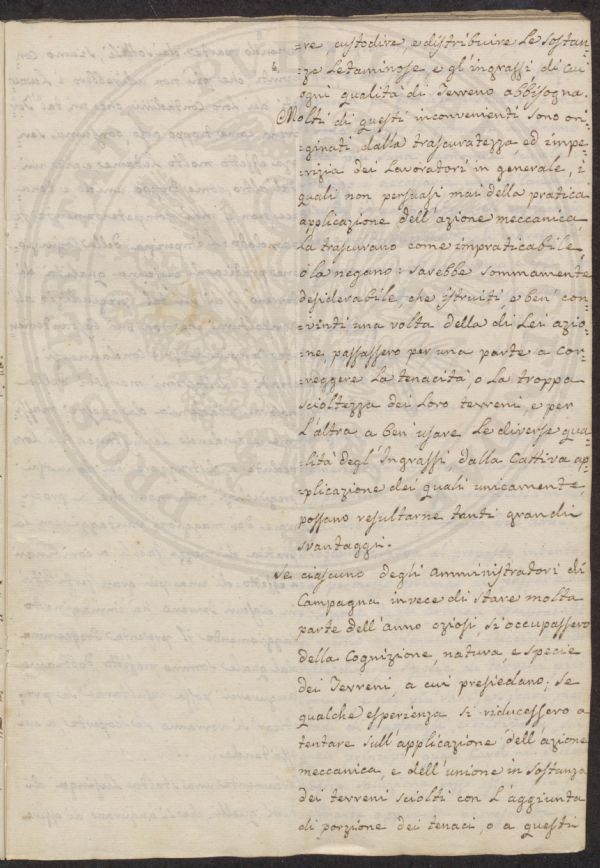 =re, custodire, e distribuire le sostan=
=ze letaminose, e gl'ingrassi di cui
ogni qualità di Terreno abbisogna.
Molti di questi inconvenienti sono ori=
=ginati dalla trascuratezza, ed impe=
=rizia dei Lavoratori in generale, i
quali non persuasi mai della pratica
applicazione dell'azione meccanica,
la trascurano come impraticabile,
o la negano: sarebbe sommamente
desiderabile, che istruiti e ben' con=
=vinti una volta della di Lei azio=
=ne, passassero per una parte a cor=
=reggere la tenacità, o la troppa
scioltezza dei loro terreni, e per
l'altra a ben' usare le diverse qua=
=lità degl'Ingrassi dalla cattiva ap=
=plicazione dei quali unicamente,
possano resultarne tanti grandi
svantaggi.
Se ciascuno degli amministratori di
Campagna invece di stare molta
parte dell'anno oziosi, si occupassero
della Cognizione, natura, e specie
dei Terreni, a cui presiedano; se
qualche esperienza si riducessero a
tentare sull'applicazione dell'azione
meccanica, e dell'unione in sostanza
dei terreni sciolti con l'aggiunta
di porzione dei tenaci, o a questi